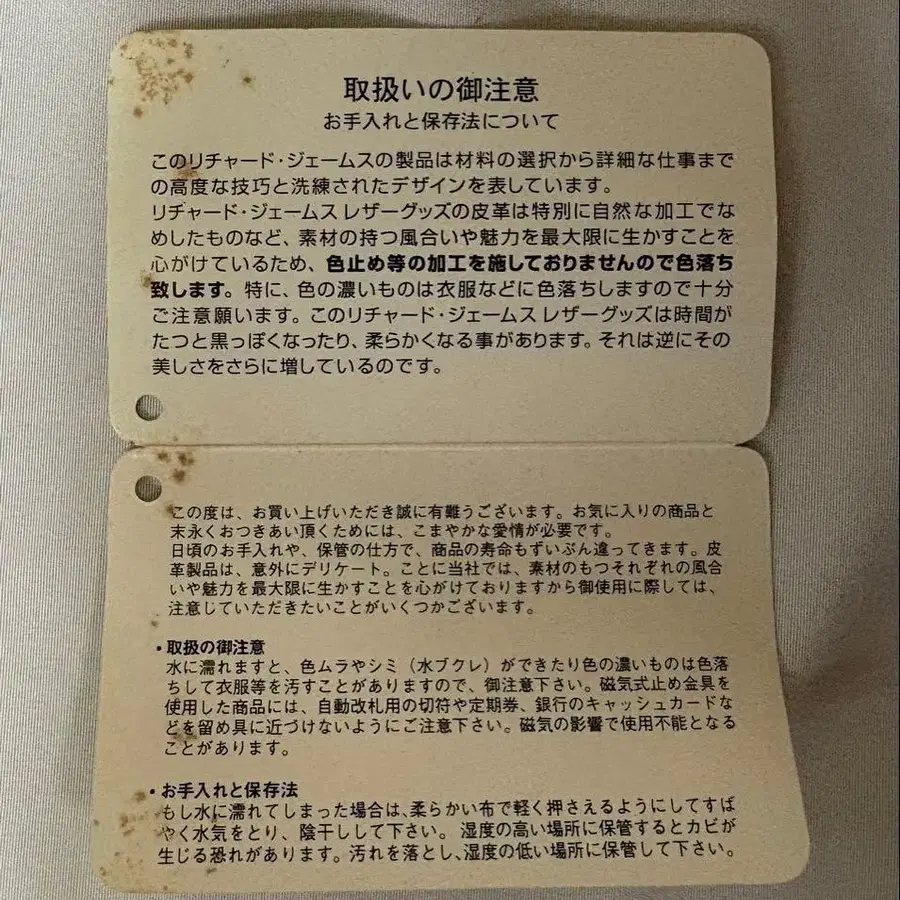 取扱いの御注意
お手入れと保存法について
このリチャード・ジェームスの製品は材料の選択から詳細な仕事まで
の高度な技巧と洗練されたデザインを表しています。
リチャード・ジェームス レザーグッズの皮革は特別に自然な加工でな
めしたものなど、素材の持つ風合いや魅力を最大限に生かすことを
心がけているため、色止め等の加工を施しておりませんので色落ち
致します。特に、色の濃いものは衣服などに色落ちしますので十分
ご注意願います。このリチャード・ジェームス レザーグッズは時間が
たつと黒っぽくなったり、柔らかくなる事があります。それは逆にその
美しさをさらに増しているのです。
この度は、お買い上げいただき誠に有難うございます。お気に入りの商品と
末永くおつきあい頂くためには、こまやかな愛情が必要です。
日頃のお手入れや、保管の仕方で、商品の寿命もずいぶん違ってきます。皮
革製品は、意外にデリケート。ことに当社では、素材のもつそれぞれの風合
いや魅力を最大限に生かすことを心がけておりますから御使用に際しては、
注意していただきたいことがいくつかございます。
・取扱の御注意
水に濡れますと、色ムラやシミ（水ブクレ）ができたり色の濃いものは色落
ちして衣服等を汚すことがありますので、御注意下さい。磁気式止め金具を
使用した商品には、自動改札用の切符や定期券、銀行のキャッシュカードな
どを留め具に近づけないようにご注意下さい。磁気の影響で使用不能となる
ことがあります。
・お手入れと保存法
もし水に濡れてしまった場合は、柔らかい布で軽く押さえるようにしてすば
やく水気をとり、陰干しして下さい。 湿度の高い場所に保管するとカビが
生じる恐れがあります。汚れを落とし、湿度の低い場所に保管して下さい。